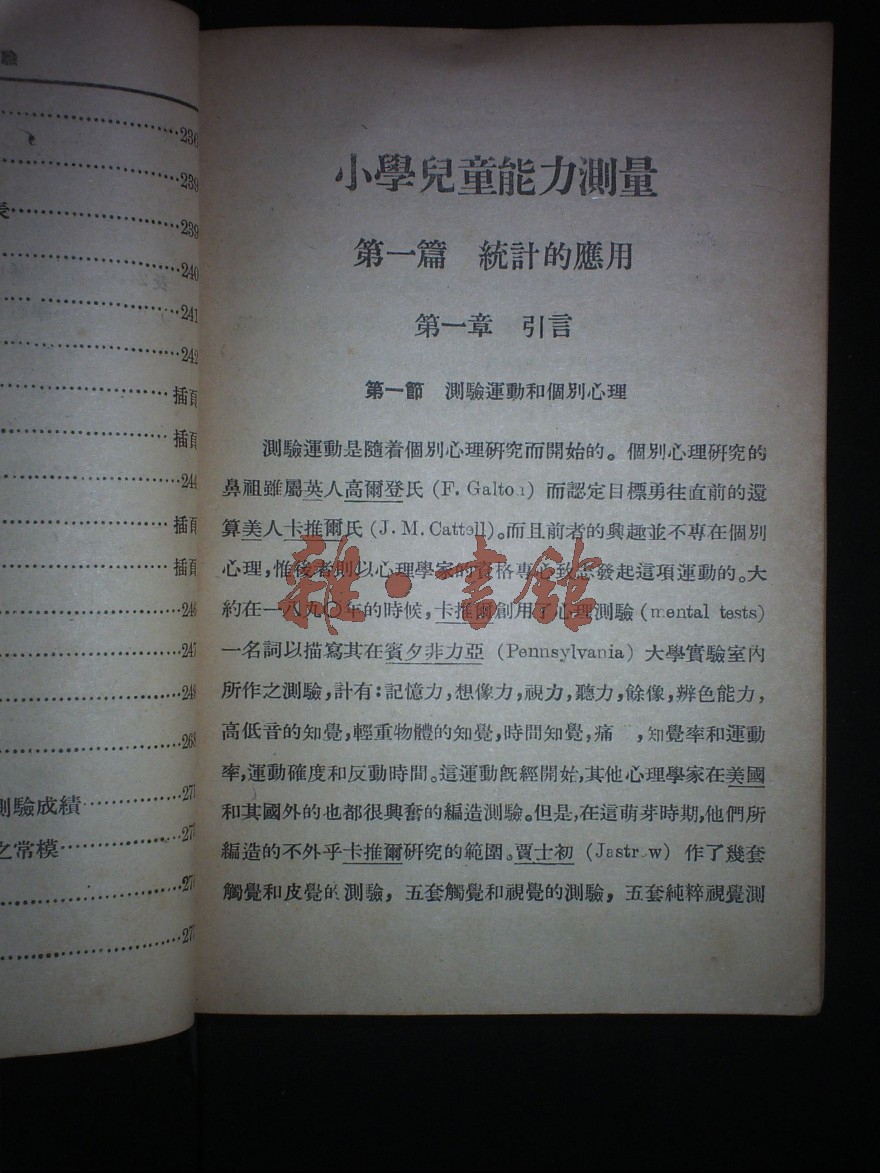 驗
236
239
表 239
240
241
242
插頁
插頁
244
插頁
插頁
246
247
248
268
測驗成績
之常模
小學兒童能力測量
第一篇 統計的應用
第一章 引言
第一節 測驗運動和個別心理
測驗運動是隨着個別心理研究而開始的。個別心理研究的
鼻祖雖屬英人高爾登氏 (F. Galton) 而認定目標勇往直前的還
算美人卡推爾氏 (J. M. Cattell)。而且前者的興趣並不專在個別
心理,惟後者則以心理學家的資格專心致志發起這項運動的。大
約在一八九〇年的時候,卡推爾創用了心理測驗 (mental tests)
一名詞以描寫其在賓夕非力亞 (Pennsylvania) 大學實驗室內
所作之測驗,計有:記憶力,想像力,視力,聽力,餘像,辨色能力,
高低音的知覺,輕重物體的知覺,時間知覺,痛 ,知覺率和運動
率,運動確度和反動時間。這運動旣經開始,其他心理學家在美國
和其國外的也都很興奮的編造測驗。但是,在這萌芽時期,他們所
編造的不外乎卡推爾研究的範圍。賈士初 (Jastrow) 作了幾套
觸覺和皮覺的測驗,五套觸覺和視覺的測驗,五套純粹視覺測
雜·書館